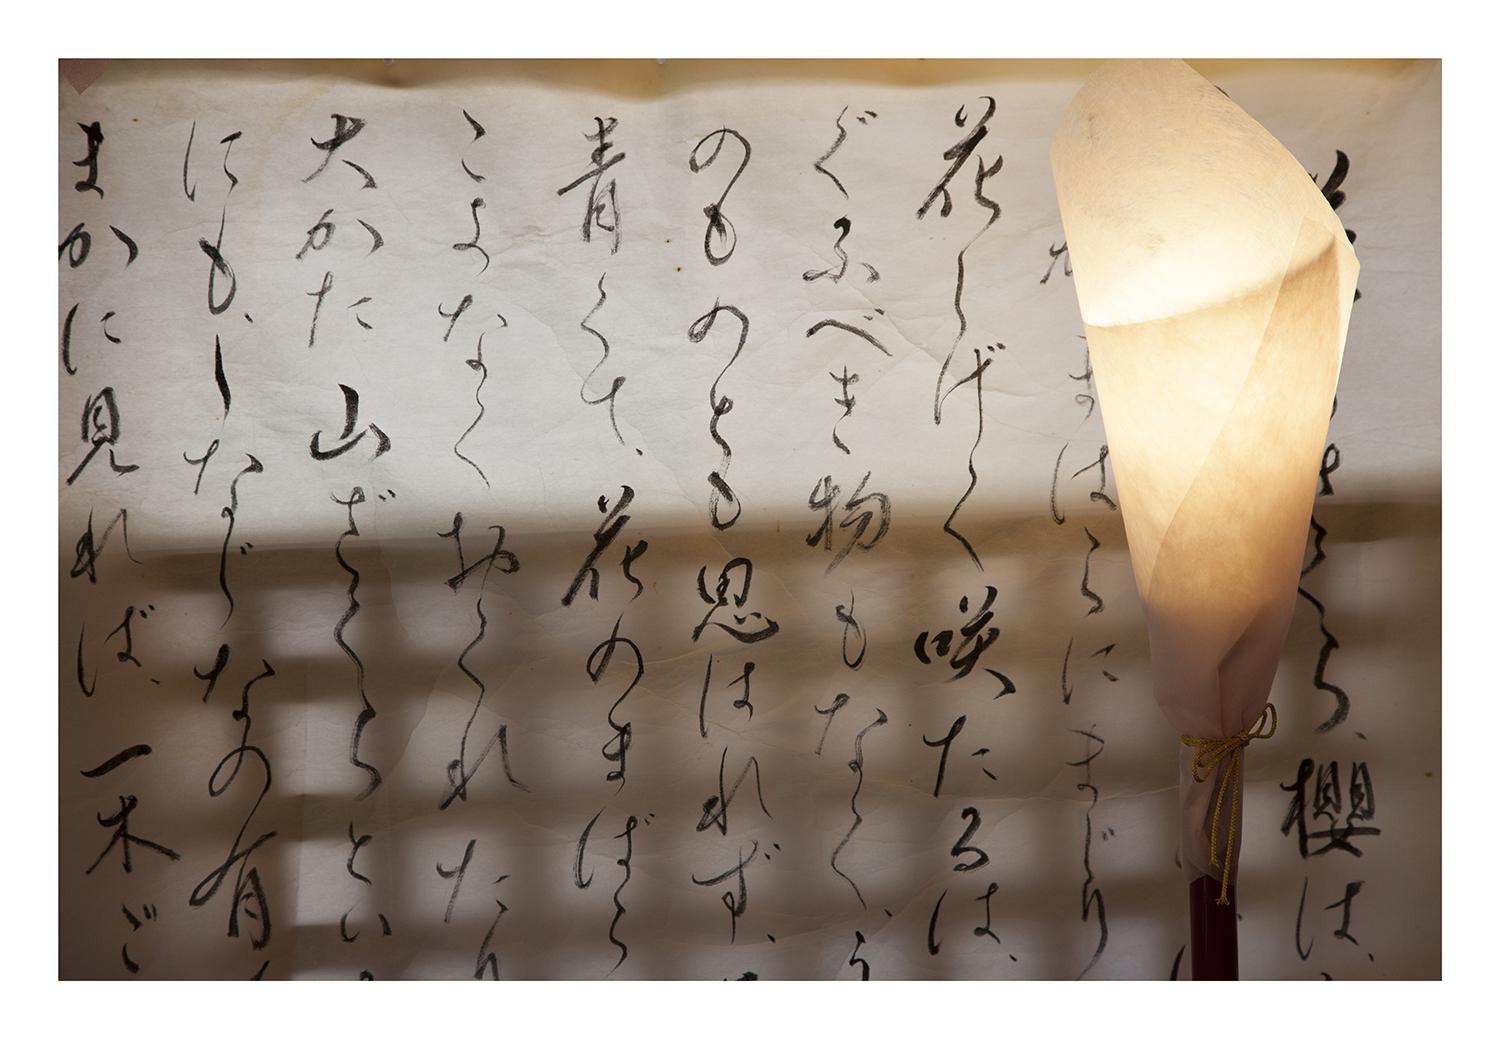 さくら、櫻は、
まばらにまじり
花しげく咲たるは、
ぐふべき物もなく、う
のものとも思はれず、
青くて、花のまばら
こよなくおくれたり
大かた山ざくらとい
にも、しなじなの有
まかに見れば、一木ご